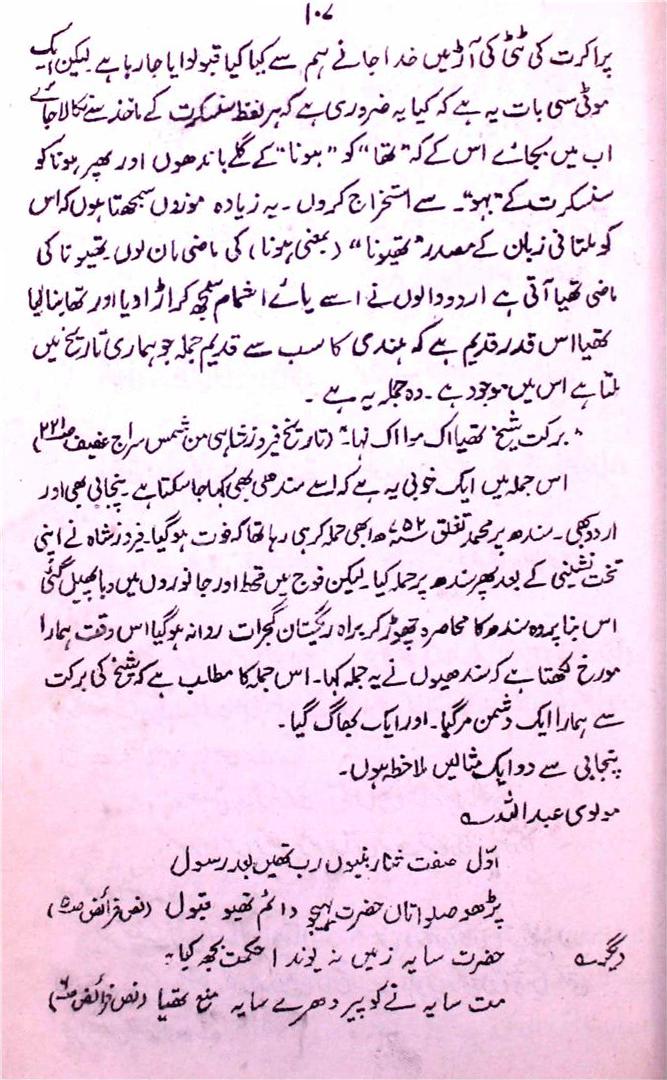 ۱۰۷
پراکرت کی ٹٹی کی آڑ میں خدا جانے ہم سے کیا کیا قبولوایا جا رہا ہے لیکن ایک
موٹی سی بات یہ ہے کہ کیا یہ ضروری ہے کہ ہر لفظ سنسکرت کے ماخذ سے نکالا جائے
اب میں بجائے اس کے کہ "تھا" کو "ہونا" کے گلے باندھوں اور پھر ہونا کو
سنسکرت کے "بہو"۔ سے استخراج کروں ۔ یہ زیادہ موزوں سمجھتا ہوں کہ اس
کو ملتانی زبان کے مصدر "تھیونا" (یعنی ہونا) کی ماضی مان لوں تھیونا کی
ماضی تھیا آتی ہے اردو والوں نے اسے یائے اشمام سمجھ کر اڑا دیا اور تھا بنا لیا
تھیا اس قدر قدیم ہے کہ ہندی کا سب سے قدیم جملہ جو ہماری تاریخ میں
ملتا ہے اس میں موجود ہے ۔ وہ جملہ یہ ہے ۔
"برکت شیخ تھیا اک موا اک نہا۔" (تاریخ فیروز شاہی من شمس سراج عفیف ص۲۳۱)
اس جملہ میں ایک خوبی یہ ہے کہ اسے سندھی بھی کہا جا سکتا ہے ۔ پنجابی بھی اور
اردو بھی ۔ سندھ پر محمد تغلق ۷۵۲ھ ابھی حملہ کر ہی رہا تھا کہ فوت ہو گیا ۔ فیروز شاہ نے اپنی
تخت نشینی کے بعد پھر سندھ پر حملہ کیا ۔ لیکن فوج میں قحط اور جانوروں میں وبا پھیل گئی
اس بنا پر وہ سندھ کا محاصرہ چھوڑ کر براہ ریگستان گجرات روانہ ہو گیا اس وقت ہمارا
مورخ لکھتا ہے کہ سندھیوں نے یہ جملہ کہا ۔ اس جملہ کا مطلب ہے کہ شیخ کی برکت
سے ہمارا ایک دشمن مر گیا ۔ اور ایک بھاگ گیا ۔
پنجابی سے دو ایک مثالیں ملاحظہ ہوں ۔
مولوی عبداللہ ؎
اوّل صفت ثنا ربنیوں رب تھیں بعد رسول
پڑھو صلواتاں حضرت دائم تھیو قبول (نص فرائض ص۵)
دیگر ؎ حضرت سایہ زمیں نہ پوندا حکمت بجھ کیا ؛
مت سایہ نے کو پیر دھرے سایہ منع تھیا (نص فرائض ص۶)